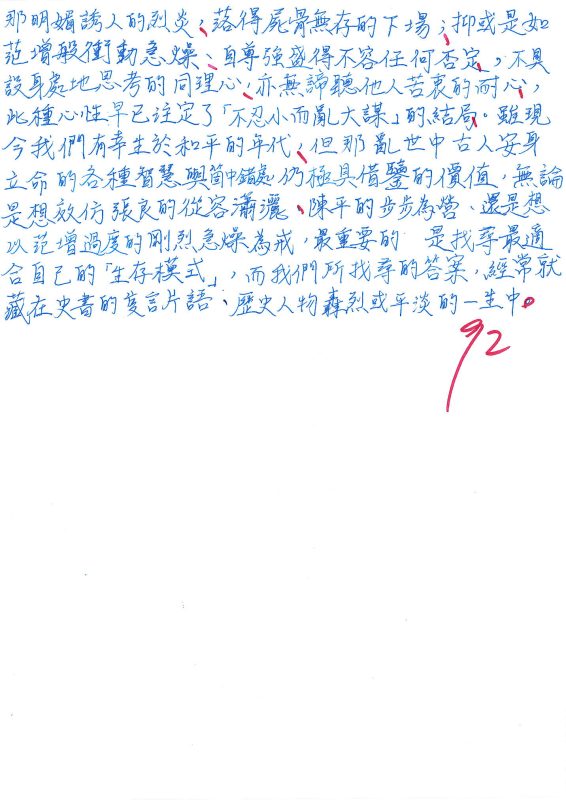 那明媚誘人的烈炎，落得屍骨無存的下場；抑或是如
范增般衝動急燥、自尊強盛得不容任何否定，不具
設身處地思考的同理心，亦無諦聽他人苦衷的耐心，
此種心性早已注定了「不忍小而亂大謀」的結局。雖現
今我們有幸生於和平的年代，但那亂世中古人安身
立命的各種智慧與箇中錯處仍極具借鑒的價值，無論
是想效仿張良的從容瀟灑、陳平的步步為營、還是想
以范增過度的剛烈急燥為戒，最重要的 是找尋最適
合自己的「生存模式」，而我們所找尋的答案，經常就
藏在史書的隻言片語、歷史人物轟烈或平淡的一生中。
92